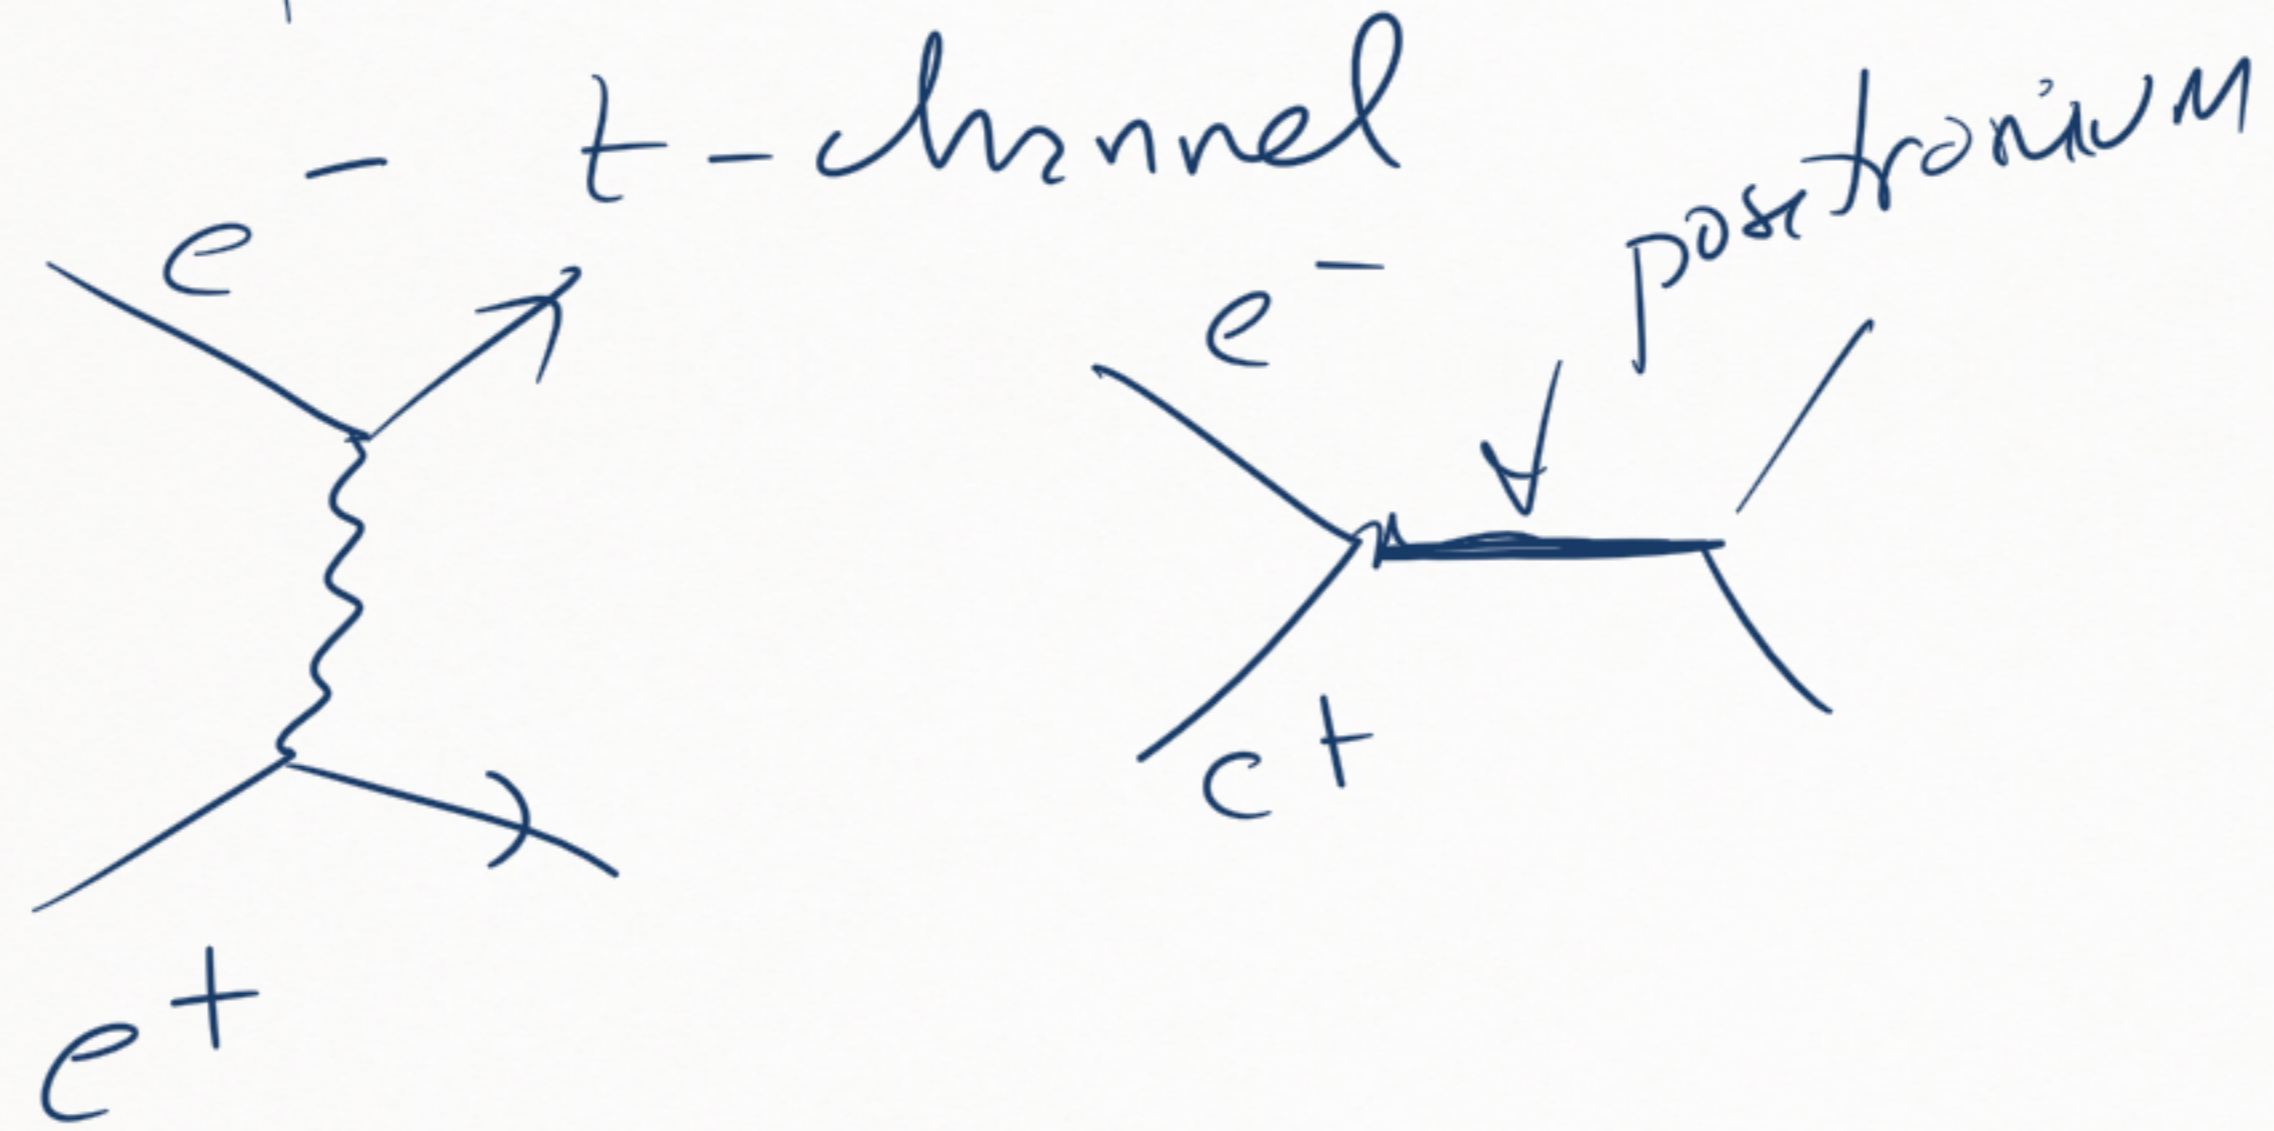 t-channel
e⁻
positronium
e⁻
e⁺
e⁺